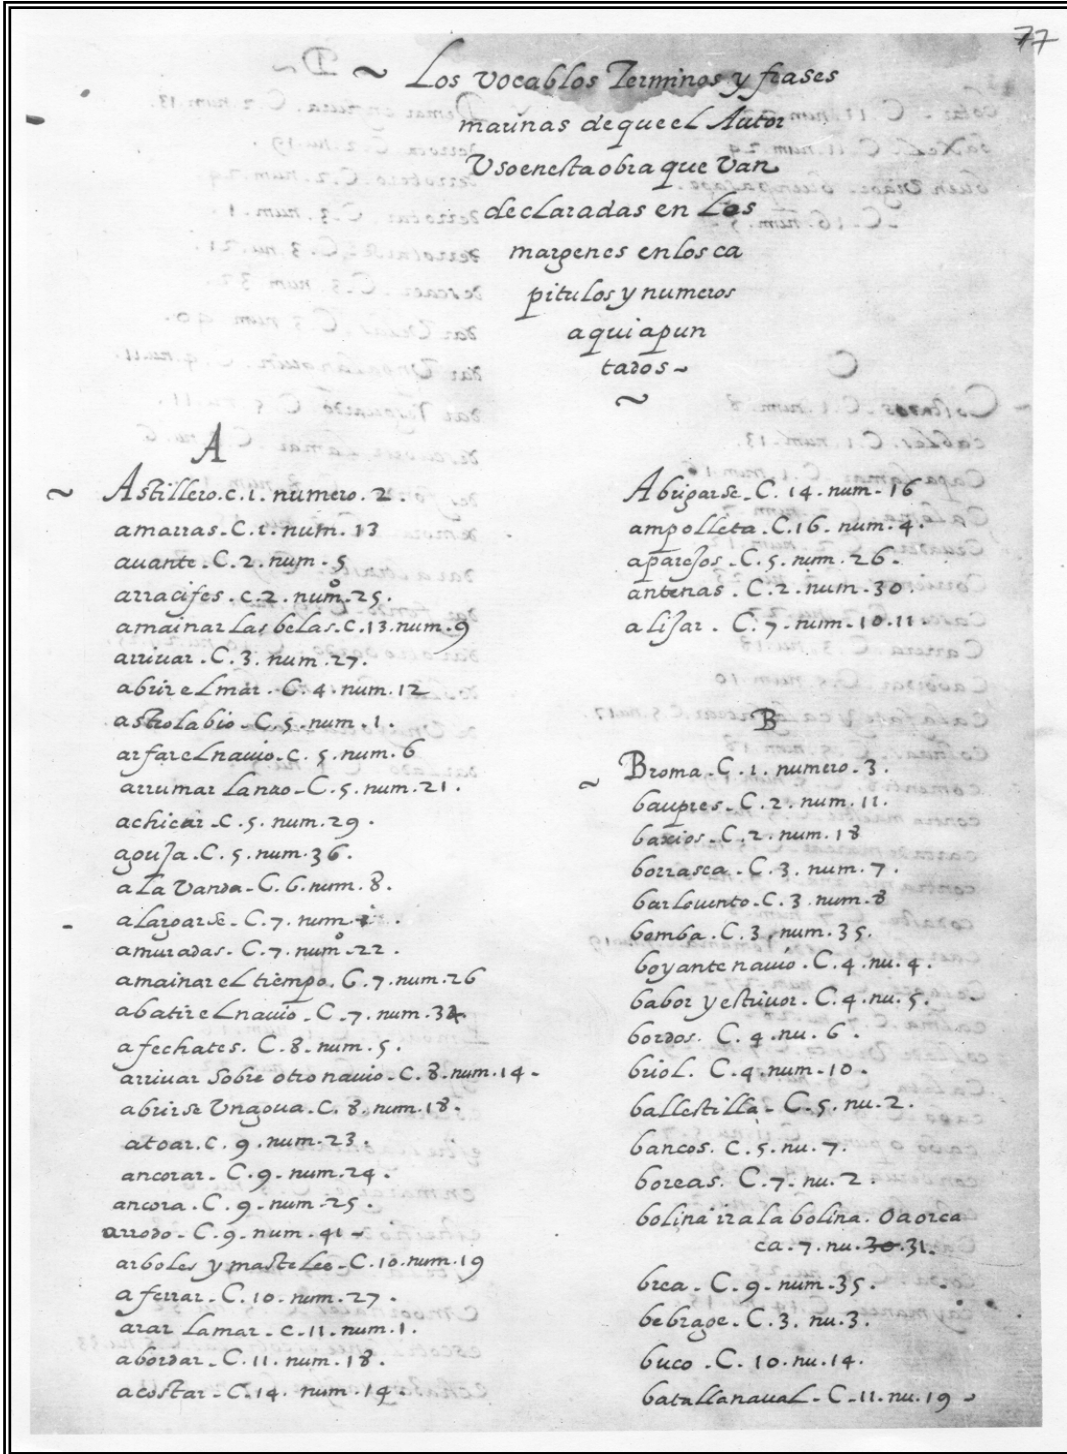 77
~ Los vocablos Terminos y frases
marinas de que el Autor
Uso en esta obra que van
declaradas en Los
margenes en los ca
pitulos y numeros
aqui apun
tados ~
~
A
~ Astillero. c. 1. numero. 2.
amarras. C. 1. num. 13
auante. C. 2. num. 5
arracifes. c. 2. numº. 25.
amainar las belas. c. 13. num. 9
arriuar. C. 3. num. 27.
abrir el mar. C. 4. num. 12
astrolabio. C. 5. num. 1.
arfar el nauio. c. 5. num. 6
arrumar Lanto. C. 5. num. 21.
achicar. C. 5. num. 29.
aguja. C. 5. num. 36.
a La Vanda. C. 6. num. 8.
alargarse. C. 7. num.
amuradas. C. 7. numº. 22.
amainar el tiempo. C. 7. num. 26
abatir el nauio. C. 7. num.
afechates. C. 8. num. 5.
arriuar sobre otro nauio. C. 8. num. 14.
abrirse Un agua. C. 8. num. 18.
atoar. c. 9. num. 23.
ancorar. C. 9. num. 24.
ancora. C. 9. num. 25.
arrodo. C. 9. num. 41
arboles y masteleo. C. 10. num. 19
aferrar. C. 10. num. 27.
arar La mar. c. 11. num. 1.
abordar. C. 11. num. 18.
acostar. C. 14. num. 14.
Abrigarse. C. 14. num. 16
ampolleta. C. 16. num. 4.
aparejos. C. 5. num. 26.
antenas. C. 2. num. 30.
alijar. C. 7. num. 10. 11.
B
~ Broma. C. 1. numero. 3.
baupres. C. 2. num. 11.
baxios. C. 2. num. 18
borrasca. C. 3. num. 7.
barlouento. C. 3. num. 8
bomba. C. 3. num. 35.
boyante nauio. C. 4. nu. 4.
babor y estriuor. C. 4. nu. 5.
bordos. C. 4. nu. 6.
briol. C. 4. num. 10.
ballestilla. C. 5. nu. 2.
bancos. C. 5. nu. 7.
boreas. C. 7. nu. 2.
bolina ir a la bolina. O a orca
ca. 7. nu. 30. 31.
brea. C. 9. num. 35.
bebrage. C. 3. nu. 3.
buco. C. 10. nu. 14.
batalla naual. C. 11. nu. 19